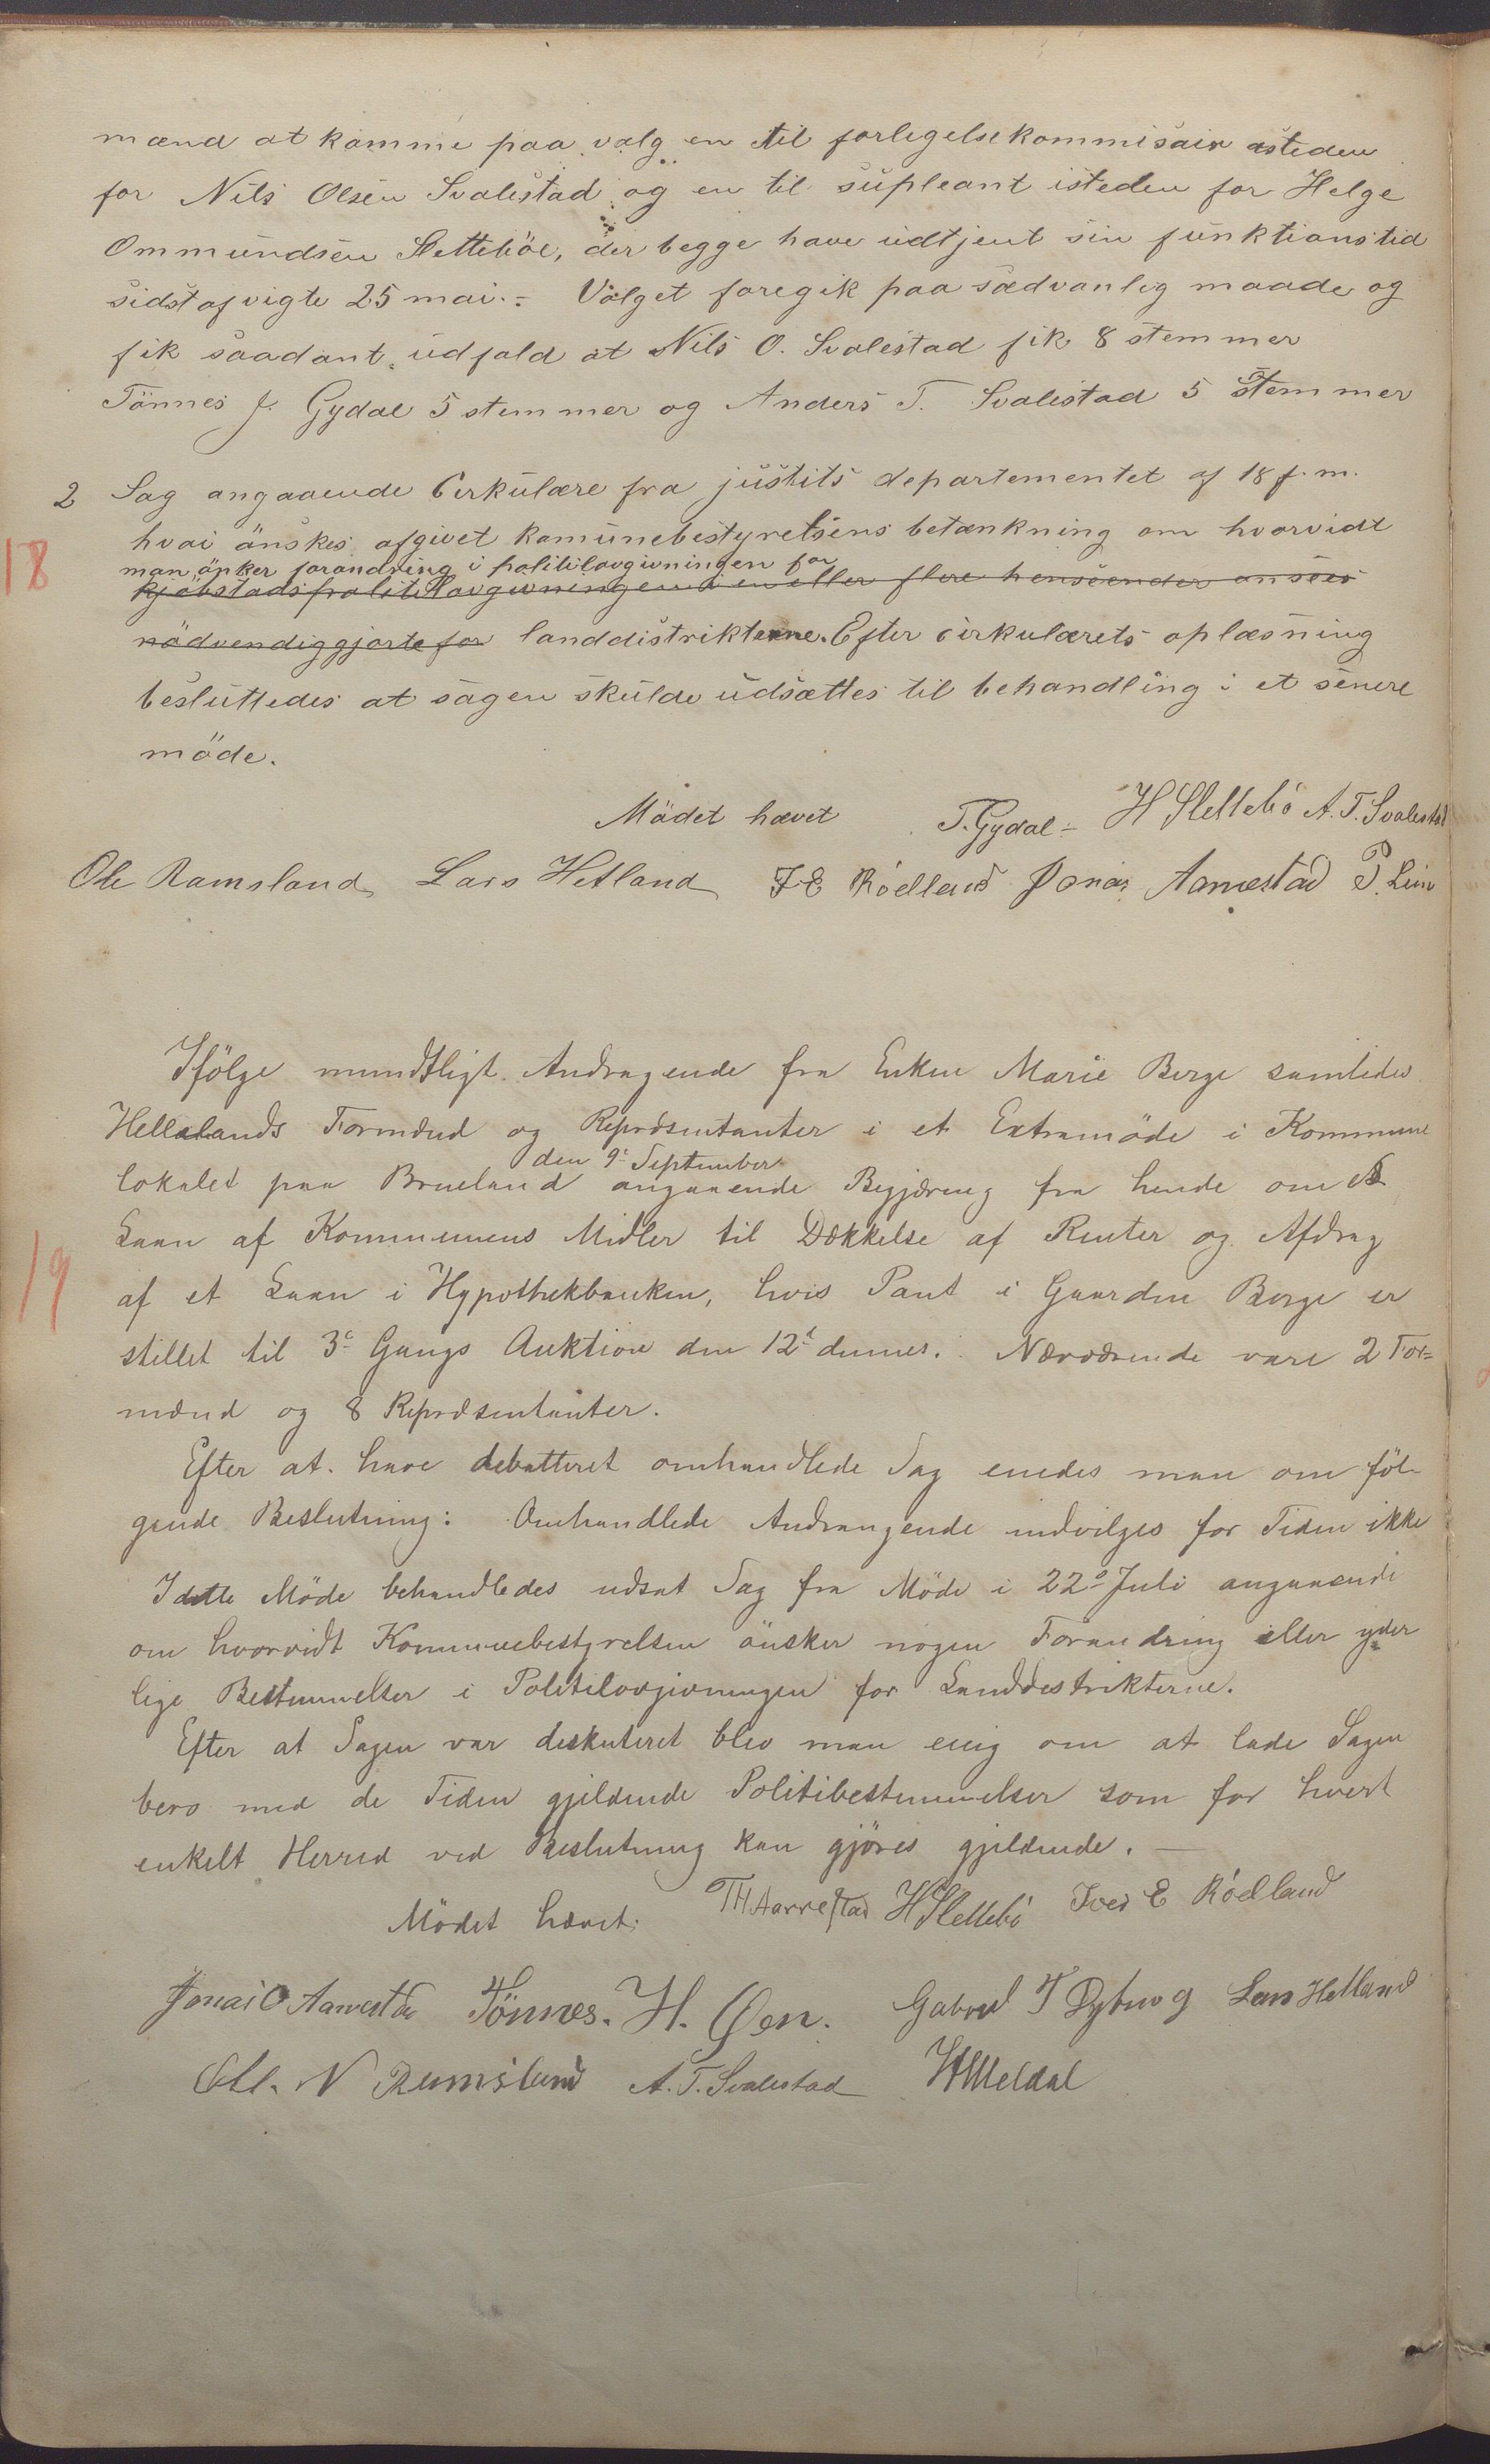 mænd at komme paa valg en til forligelsekommisair isteden
for Nils Olsen Svalestad og en til supleant isteden for Helge
Ommundsen Slettebö, der begge have udtjent sin funktionstid
sidst afvigte 25 mai. - Valget foregik paa sædvanlig maade og
fik saadant udfald at Nils O. Svalestad fik 8 stemmer
Tönnes J. Gydal 5 stemmer og Anders T. Svalestad 5 stemmer
2 Sag angaaende Cirkulære fra justits departementet af 18 f. m.
hvai önskes afgivet komunebestyrelsens betænkning om hvorvidt
18
man önker forandring i politilovgivningen for
kjöbstads politilovgivningen i en eller flere henseender ansees
nödvendiggjorte for landdistrikterne. Efter cirkulærets oplæsning
besluttedes at sagen skulde udsættes til behandling i et senere
möde.
Mödet hævet T. Gydal - H Slettebö A. T. Svalestad
Ole Ramsland Lars Hetland I E Röelland Jonas Aarrestad P.
Ifölge mundtligt Andragende fra Enken Marie Berge samledes
Hellelands Formænd og Repræsentanter i et Extramöde i Kommune
den 9e September
lokalet paa Brueland angaaende Begjæring fra hende om et
Laan af Kommunens Midler til Dækkelse af Renter og Afdrag
19
af et Laan i Hypothekbanken, hvis Pant i Gaarden Berge er
stillet til 3e Gangs Auktion den 12t dennes. Nærværende vare 2 For-
mænd og 8 Repræsentanter.
Efter at have debatteret omhandlede Sag enedes man om föl-
gende Beslutning: Omhandlede Andrangende indvilges for Tiden ikke
I dette Möde behandledes udsat Sag fra Möde i 22de Juli angaaende
om hvorvidt Kommunebestyrelsen önsker nogen Forandring eller yder
lige Bestemmelser i Politilovgivningen for Landdestrikterne.
Efter at Sagen var deskuteret blev man enig om at lade Sagen
bero med de Tiden gjeldende Politibestemmelser som for hvert
enkelt Herred ved Beslutning kan gjöres gjeldende. -
Mödet hævet. TH Aarrestad H Slettebö Iver E Röelland
Jonas O Aarrestad Tönnes. H. Øen. Gabriel T Dybing Lars Hetland
Ole. N Ramsland A. T. Svalestad H Meldal